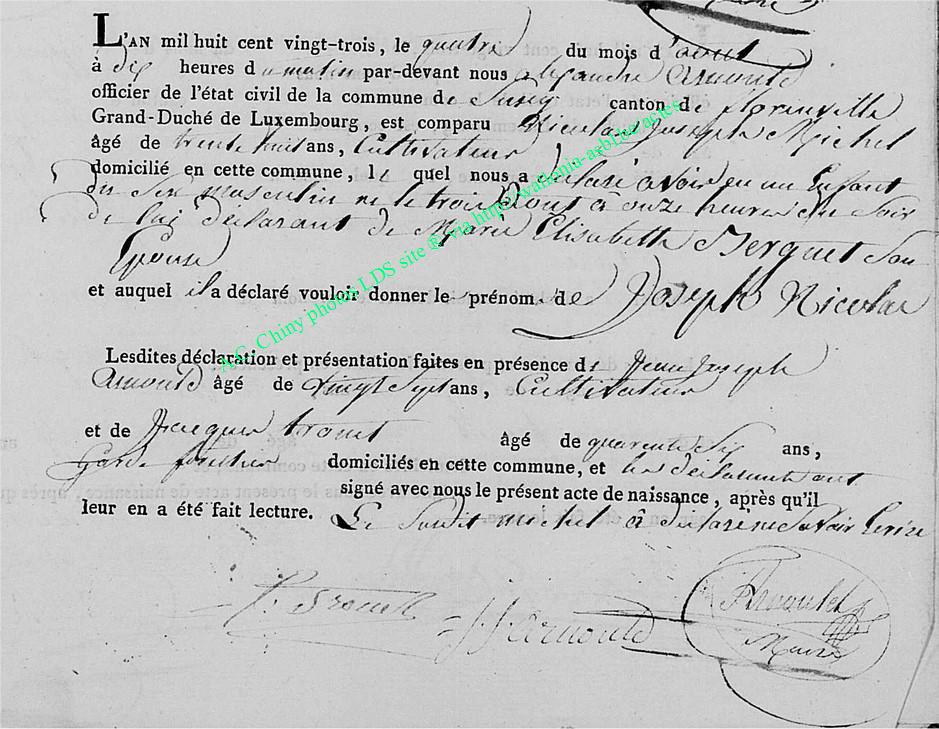 L'AN mil huit cent vingt-trois, le quatre du mois d'aout
à dix heures du matin par-devant nous alexandre arnould
officier de l'état civil de la commune de Suxy canton de florenville
Grand-Duché de Luxembourg, est comparu Nicolas Joseph Michel
âgé de trente huit ans, Cultivateur
domicilié en cette commune, le quel nous a déclaré avoir eu un Enfant
du sex masculin né le trois aout a onze heures du Soir
de lui déclarant de Marie Elisabeth Serquet Son
Epouse
et auquel il a déclaré vouloir donner le prénom de Joseph Nicolas
Lesdites déclaration et présentation faites en présence de Jean Joseph
Arnould âgé de vingt sept ans, Cultivateur
et de Jacques trouet âgé de quarente Six ans,
Garde forestier domiciliés en cette commune, et les déclarants ont
signé avec nous le présent acte de naissance, après qu'il
leur en a été fait lecture. Le Susdit michel a déclaré ne Savoir Ecrire
J. Trouet J J arnould Arnould
Maire
A.C. Chiny photos LDS site © via http://wallonia-asbl.be/actes